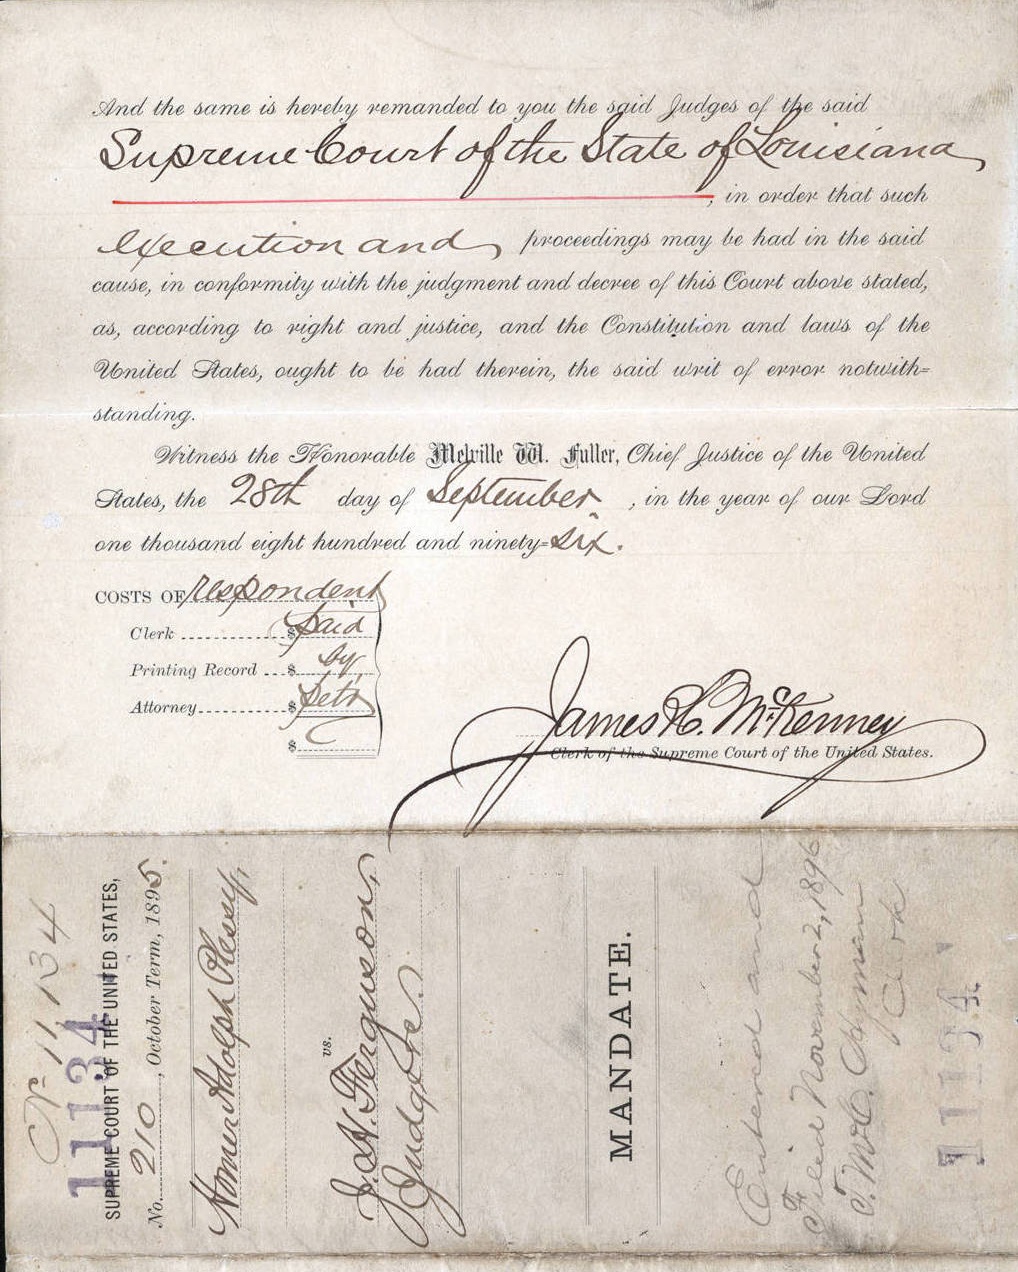 And the same is hereby remanded to you the said Judges of the said
Supreme Court of the State of Louisiana
, in order that such
execution and proceedings may be had in the said
cause, in conformity with the judgment and decree of this Court above stated,
as, according to right and justice, and the Constitution and laws of the
United States, ought to be had therein, the said writ of error notwith=
standing.
Witness the Honorable Melville W. Fuller, Chief Justice of the United
States, the 28th day of September, in the year of our Lord
one thousand eight hundred and ninety=six.
COSTS OF respondent
Clerk $ paid
Printing Record $ by
Attorney $ petr
$
James H. McKenney
Clerk of the Supreme Court of the United States.
No 11134
11134
SUPREME COURT OF THE UNITED STATES,
No. 210, October Term, 1895.
Homer Adolph Plessy,
vs.
J. H. Ferguson,
Judge &c.
MANDATE.
Entered and
Filed November 2, 1896
Clerk
11134